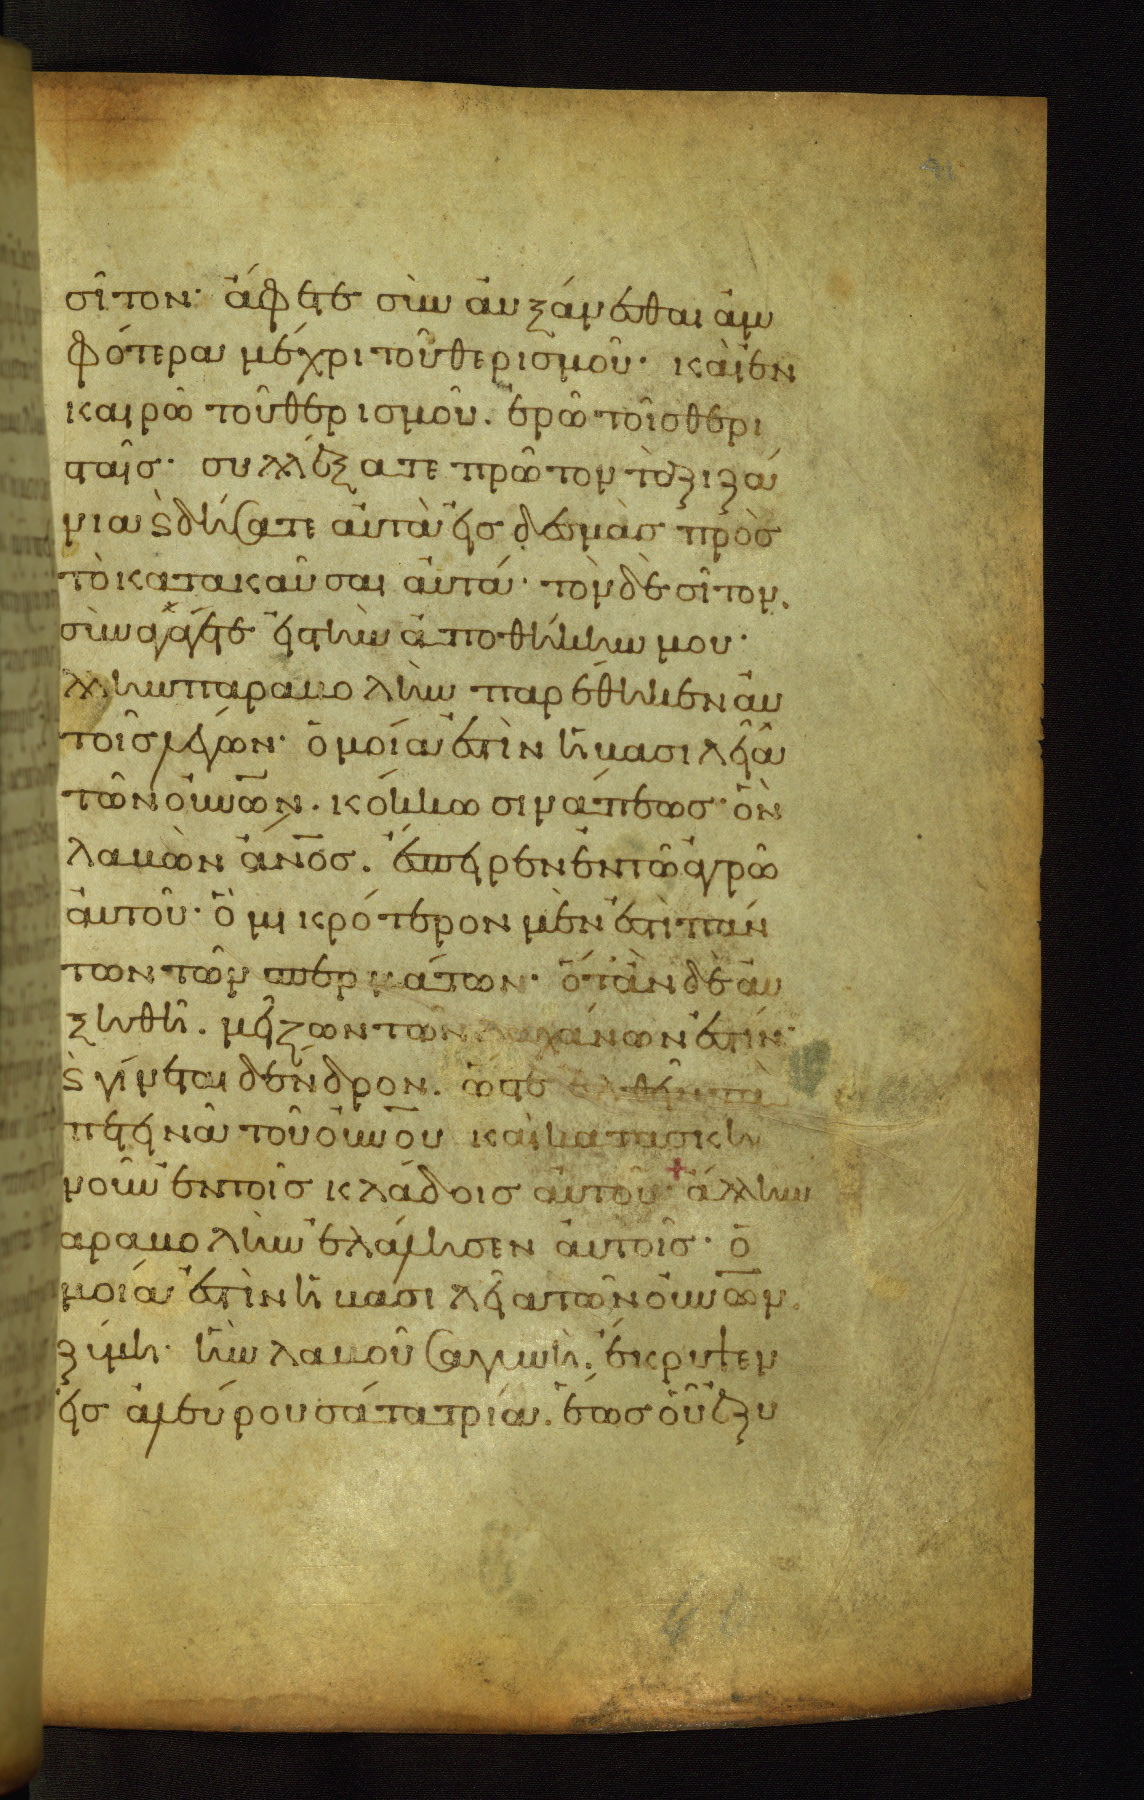 σῖτον· ἄφετε συναυξάνεσθαι ἀμ
φότερα μέχρι τοῦ θερισμοῦ· καὶ ἐν
καιρῶ τοῦ θερισμοῦ. ἐρῶ τοῖς θερι
ταῖς· συλλέξατε πρῶτον τὰ ζιζά
νια ϛ δήσατε αὐτὰ εἰς δεσμὰς πρὸς
τὸ κατακαῦσαι αὐτά· τὸν δὲ σῖτον.
συναγάγετε εἰς τὴν ἀποθήκην μου·
λλην παραβολὴν παρέθηκεν αὐ
τοῖς λέγων· ὁμοία ἐστὶν ἡ βασιλεία
τῶν οὐνῶν. κόκκω σινάπεως· ὃν
λαβὼν ἄνος. ἔσπειρεν ἐν τῶ ἀγρῶ
αὐτοῦ· ὃ μικρότερον μέν ἐστι πάν
των τῶν σπερμάτων· ὅταν δὲ αὐ
ξηθῆ. μεῖζων τῶν λαχάνων ἐστίν·
ϛ γίνεται δένδρον. ὥστε ἐλθεῖν τὰ
πετεινὰ τοῦ οὐνοῦ καὶ κατασκη
νοῦν ἐν τοῖς κλάδοις αὐτοῦ· + ἄλλην
αραβολὴν ἐλάλησεν αὐτοῖς· ὁ
μοία ἐστὶν ἡ βασιλεία τῶν οὐνῶν.
ζύμη· ἣν λαβοῦσα γυνὴ. ἔκρυψεν
εἰς ἀλεύρου σάτα τρία. ἕως οὗ ἐζυ